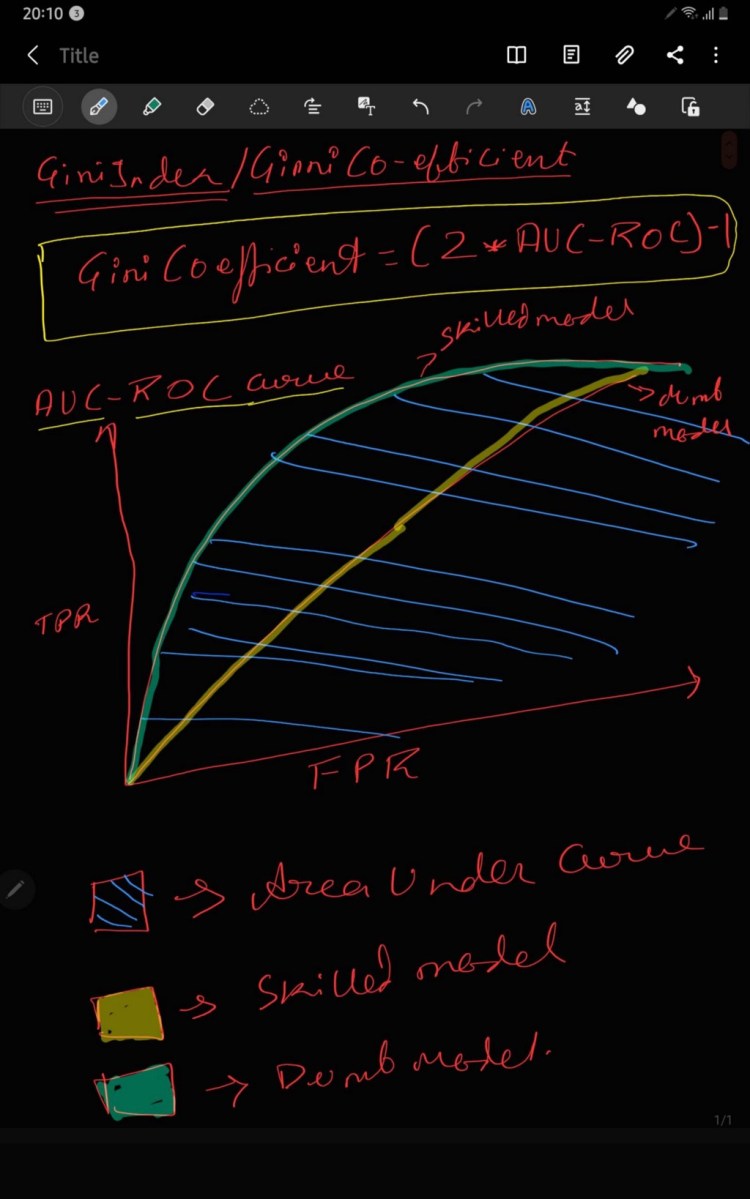 20:10 3
Title
Gini Index / Ginni Co-efficient
Gini Coefficient = (2 * AUC-ROC)-1
skilled model
AUC-ROC Curve
dumb
model
TPR
FPR
Area Under Curve
Skilled model
Dumb model.
1/1